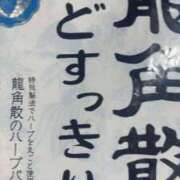 龍角散
どすっきい
特殊製法でハーブをまるごと使
龍角散のハーブパ